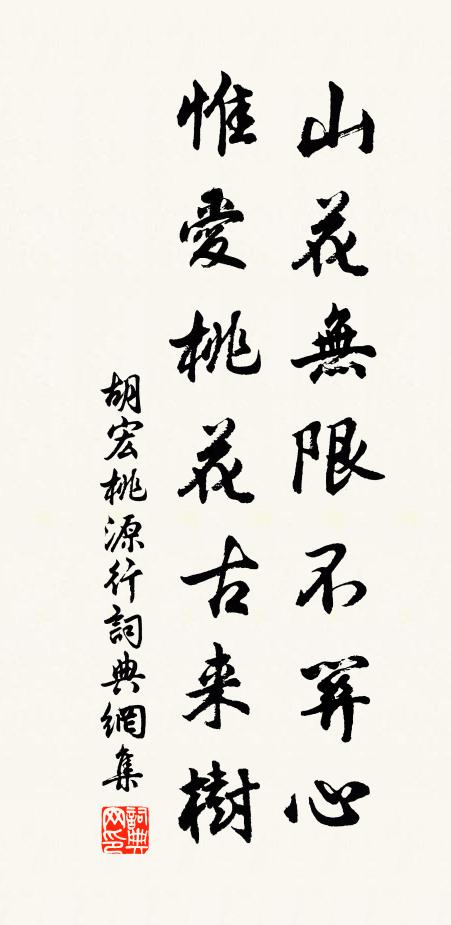 山花無限不關心
惟愛桃花古来樹
胡宏桃源行詞典網集
詞典网印